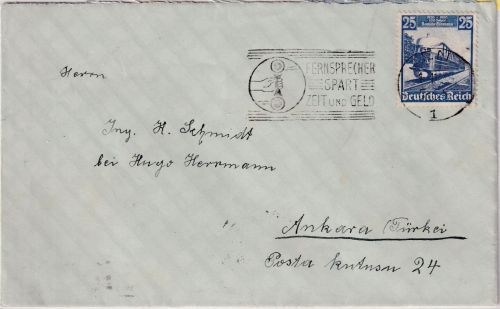 25 25
Deutsches Reich
FERNSPRECHER
SPART
ZEIT UND GELD
1
Herrn
Ing. H. Schmidt
bei Hugo Herrmann
Ankara (Türkei
Posta kutusu 24